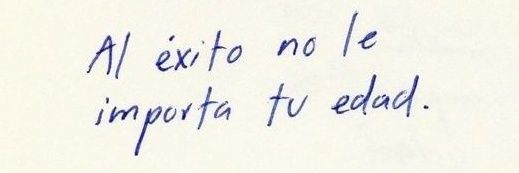 Al éxito no le
importa tu edad.